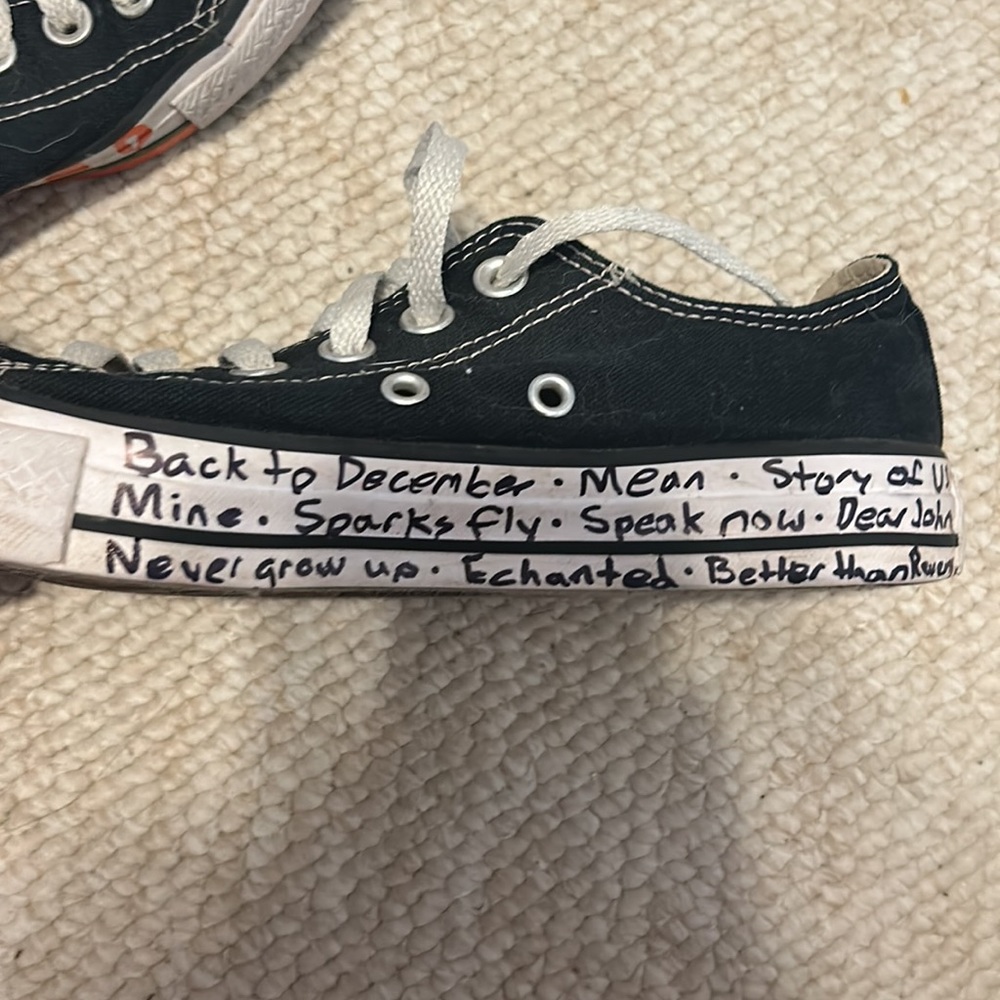 Back to December · Mean · Story of Us
Mine · Sparks fly · Speak now · Dear John
Never grow up · Echanted · Better than